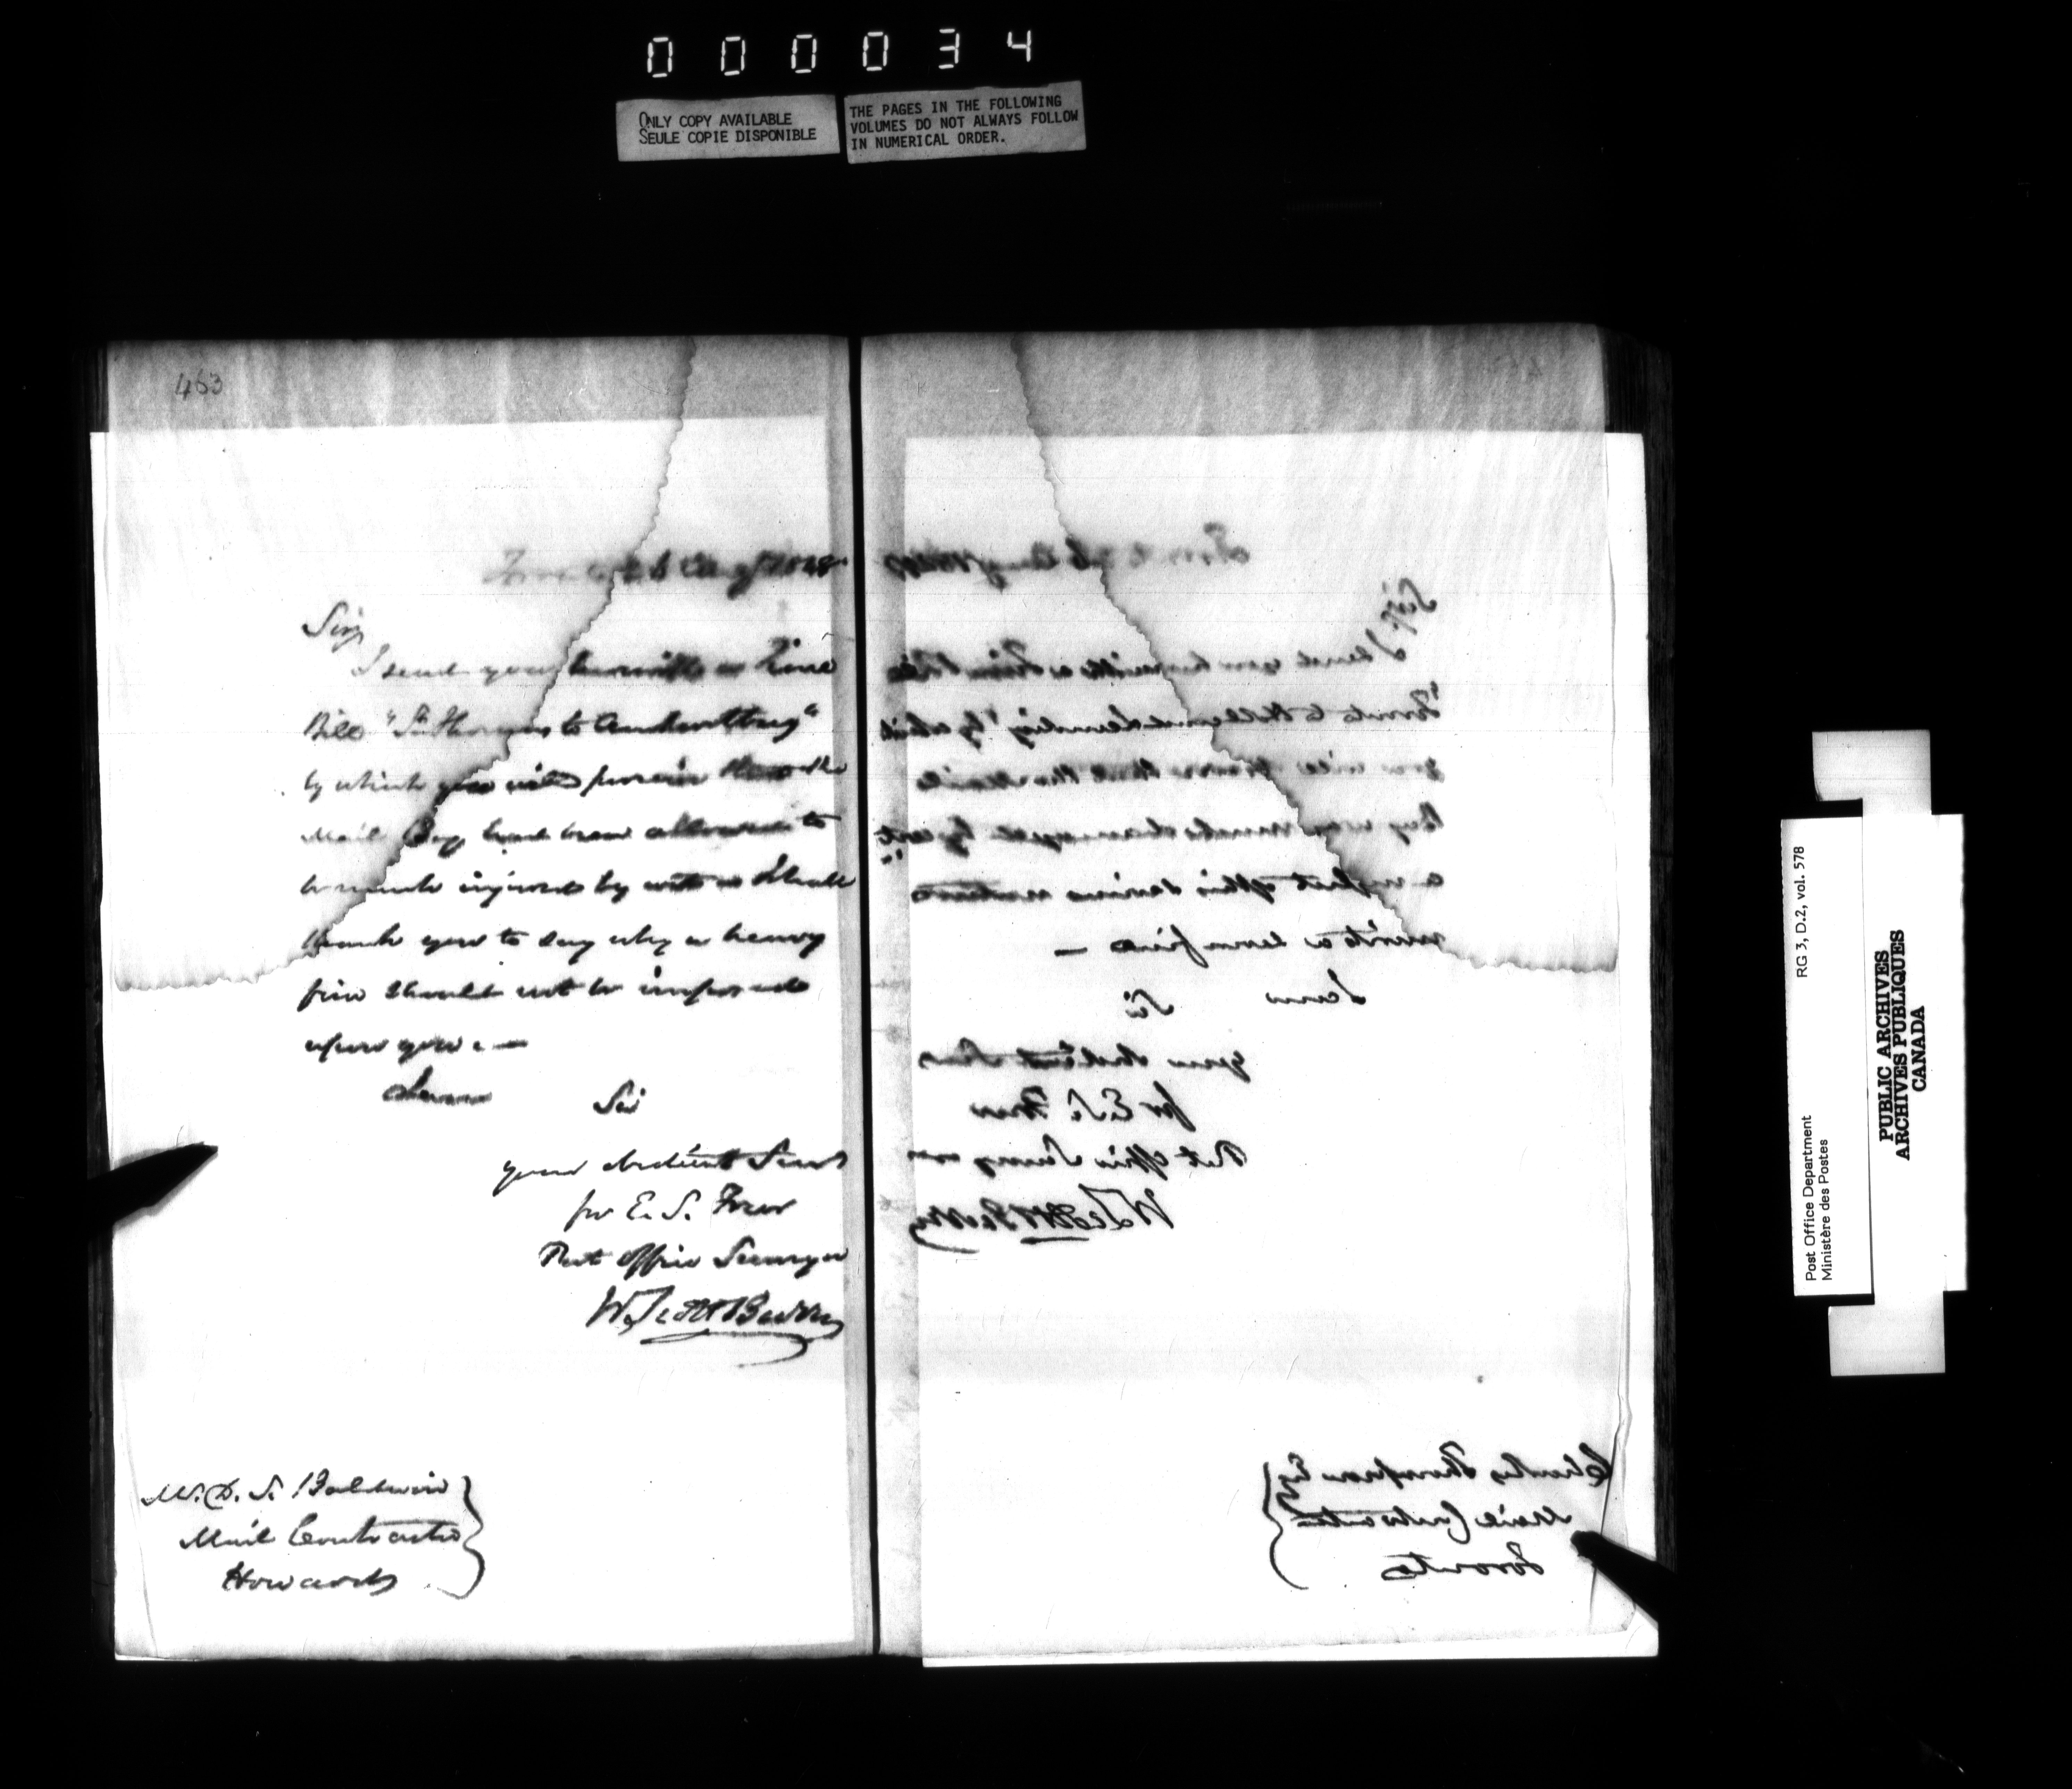 000034
ONLY COPY AVAILABLE
SEULE COPIE DISPONIBLE
THE PAGES IN THE FOLLOWING
VOLUMES DO NOT ALWAYS FOLLOW
IN NUMERICAL ORDER.
463
Augt 1848
Sir,
I send you herewith a Time
Bill "St Thomas to Amherstburg"
by which you will perceive that the
Mail Bag had been allowed to
be much injured by wet & I shall
thank you to say why a heavy
fine should not be imposed
upon you. —
I am
Sir
your obedient Servt
for E. S. Freer
Post Office Surveyor
Mr. D. S. Baldwin
Mail Contractor
Howards
Toronto Augt
Sir,
I send you herewith a Time Bill
"Toronto to Holland Landing" by which
you will that the Mail
Bag was much damaged by wet
a neglect of this serious nature
merits a fine —
I am
Sir
your obedient Serv
for E. S. Freer
Post Office Surveyor
Charles Thompson Esq
Mail Contractor
Toronto
Post Office Department
Ministère des Postes
RG 3, D.2, vol. 578
PUBLIC ARCHIVES
ARCHIVES PUBLIQUES
CANADA